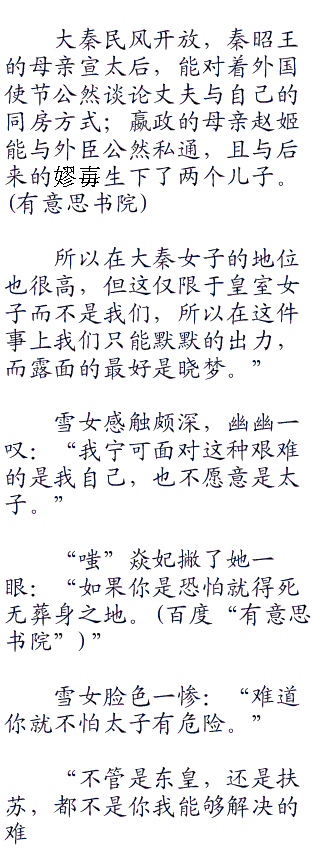 大秦民风开放，秦昭王
的母亲宣太后，能对着外国
使节公然谈论丈夫与自己的
同房方式；嬴政的母亲赵姬
能与外臣公然私通，且与后
来的嫪毐生下了两个儿子。
(有意思书院)
所以在大秦女子的地位
也很高，但这仅限于皇室女
子而不是我们，所以在这件
事上我们只能默默的出力，
而露面的最好是晓梦。”
雪女感触颇深，幽幽一
叹：“我宁可面对这种艰难
的是我自己，也不愿意是太
子。”
“嗤”焱妃撇了她一
眼：“如果你是恐怕就得死
无葬身之地。(百度“有意思
书院”)”
雪女脸色一惨：“难道
你就不怕太子有危险。”
“不管是东皇，还是扶
苏，都不是你我能够解决的
难